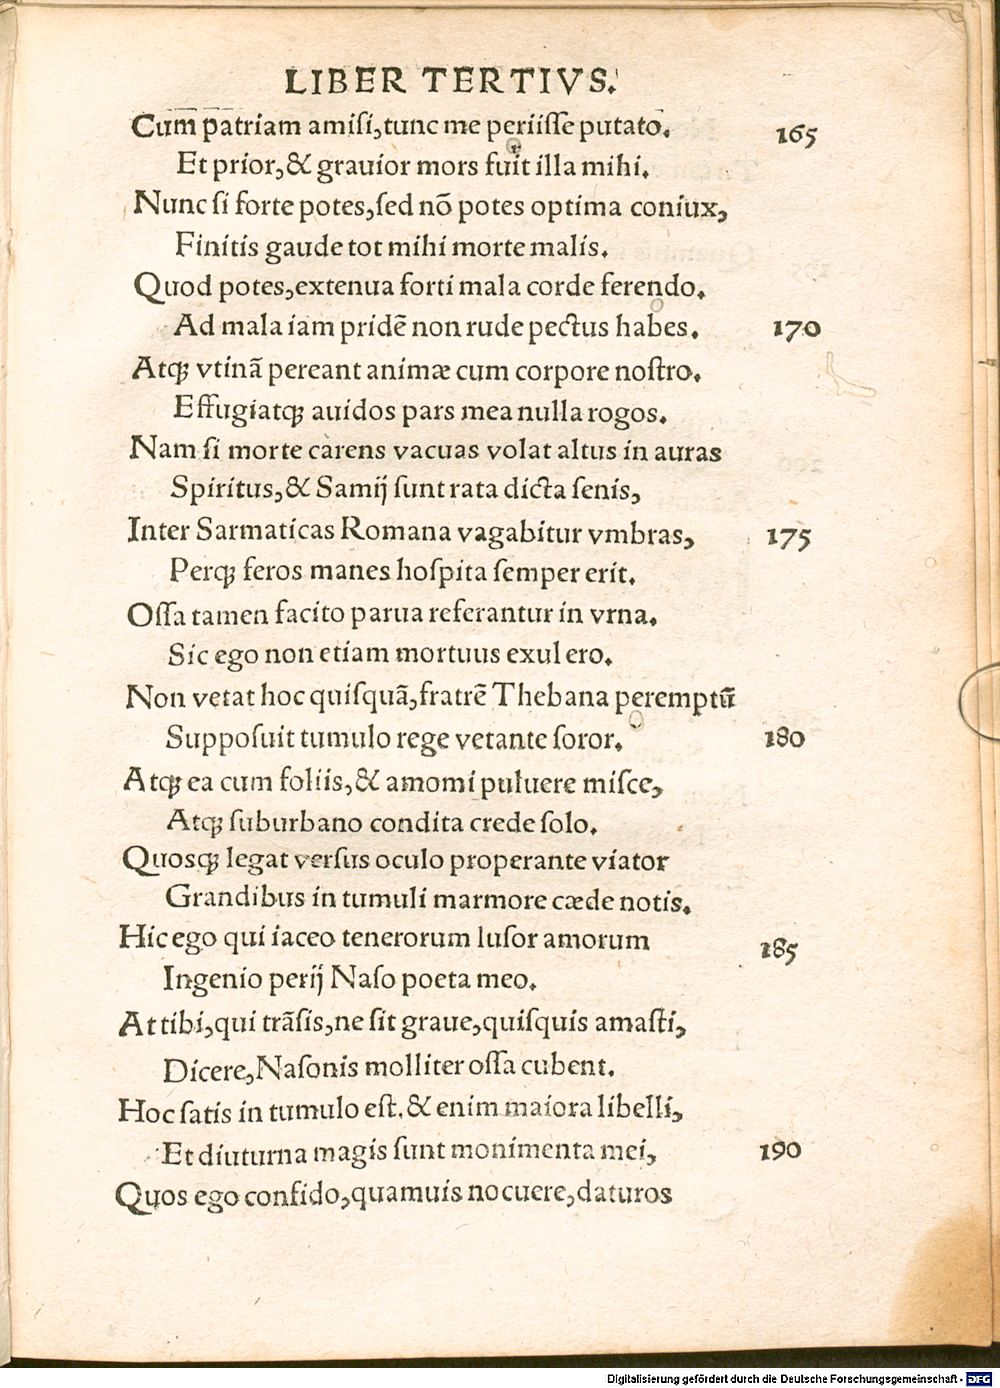 LIBER TERTIVS.
Cum patriam amisi, tunc me periisse putato. 165
Et prior, & grauior mors fuit illa mihi.
Nunc si forte potes, sed nõ potes optima coniux,
Finitis gaude tot mihi morte malis.
Quod potes, extenua forti mala corde ferendo.
Ad mala iam pridẽ non rude pectus habes. 170
Atq; vtinã pereant animæ cum corpore nostro.
Effugiatq; auidos pars mea nulla rogos.
Nam si morte carens vacuas volat altus in auras
Spiritus, & Samij sunt rata dicta senis,
Inter Sarmaticas Romana vagabitur vmbras, 175
Perq; feros manes hospita semper erit.
Ossa tamen facito parua referantur in vrna.
Sic ego non etiam mortuus exul ero.
Non vetat hoc quisquã, fratrẽ Thebana peremptũ
Supposuit tumulo rege vetante soror. 180
Atq; ea cum foliis, & amomi puluere misce,
Atq; suburbano condita crede solo.
Quosq; legat versus oculo properante viator
Grandibus in tumuli marmore cæde notis.
Hic ego qui iaceo tenerorum lusor amorum 185
Ingenio perij Naso poeta meo.
At tibi, qui trãsis, ne sit graue, quisquis amasti,
Dicere, Nasonis molliter ossa cubent.
Hoc satis in tumulo est. & enim maiora libelli,
Et diuturna magis sunt monimenta mei, 190
Quos ego confido, quamuis nocuere, daturos
Digitalisierung gefördert durch die Deutsche Forschungsgemeinschaft - DFG